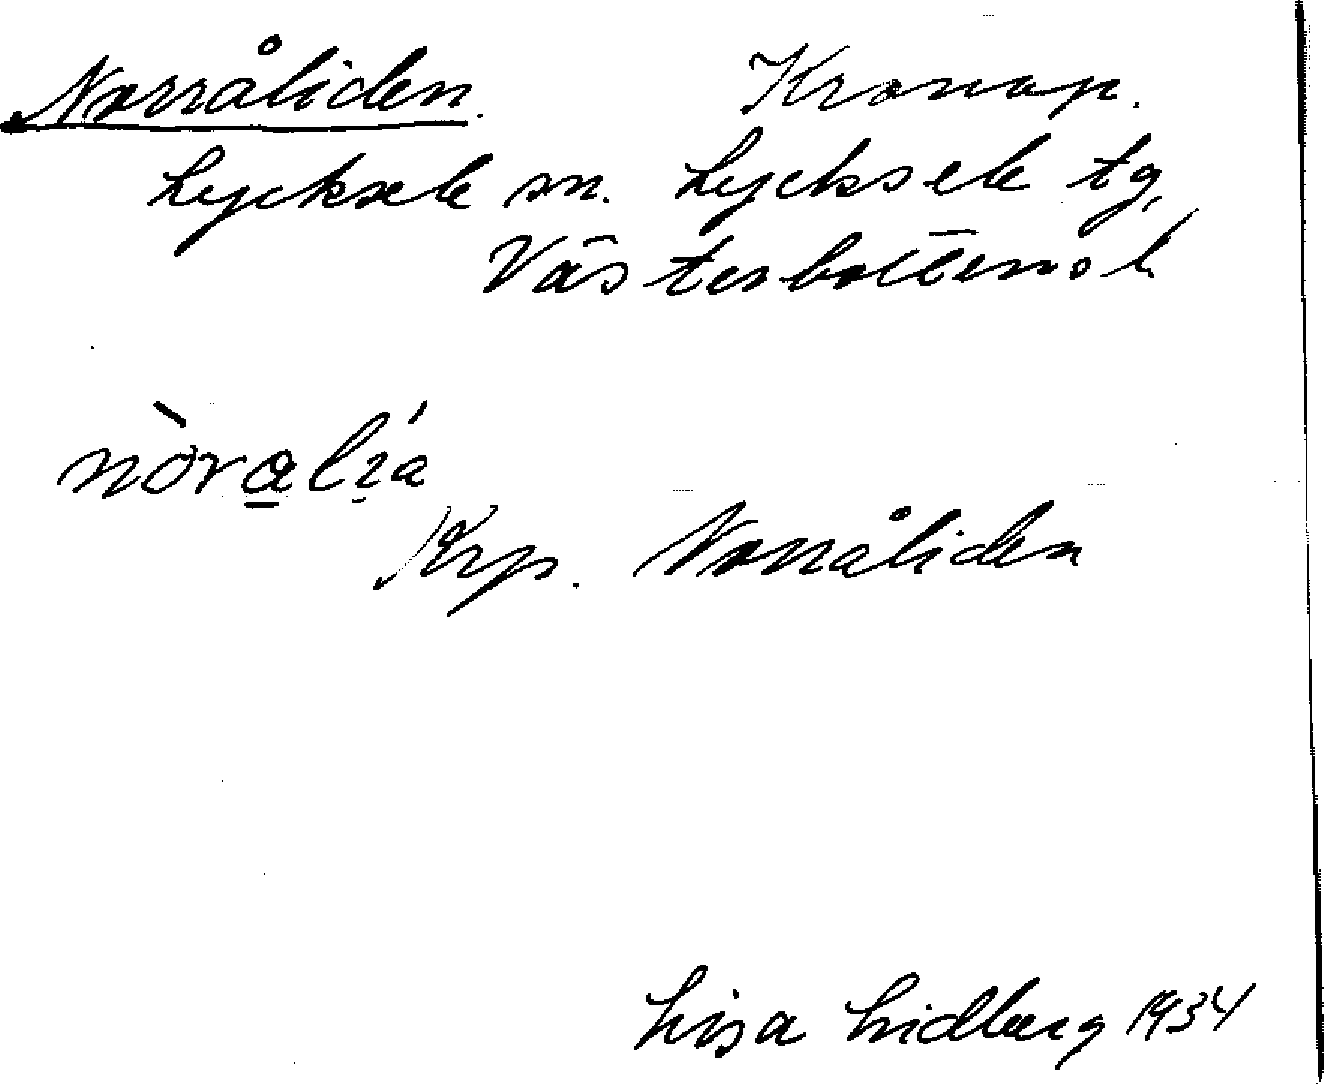 Norråliden. Kronop.
Lycksele sn. Lycksele tg,
Västerbottens l.
nòralía
Krp. Norråliden
Lisa Lidberg 1934